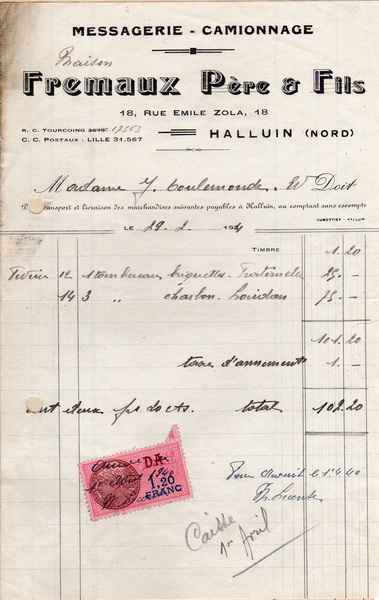 MESSAGERIE - CAMIONNAGE
Fremaux Père & Fils
18, RUE EMILE ZOLA, 18
R. C. TOURCOING 12553
HALLUIN (NORD)
C. C. POSTAUX : LILLE 31.567
Madame J. Coulemonde. Doit
transport et livraison des marchandises suivantes payables à Halluin, au comptant sans escompte
LE 29. 2. 194
TIMBRE 1.20
Février 12 1 tombereau briquettes 25. —
14 3 " charbon 75. —
101.20
taxe d'armement 1. —
cent deux frs 20 cts. total 102.20
D.A
1,20
FRANC
Pour Acquit le 1.4.40
Caisse
1er Avril